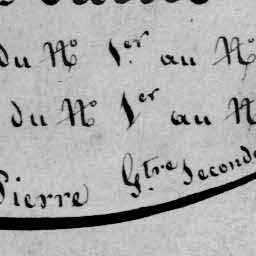 du N° 1.er au N°
du N° 1er au N
Pierre G.tre Seconde